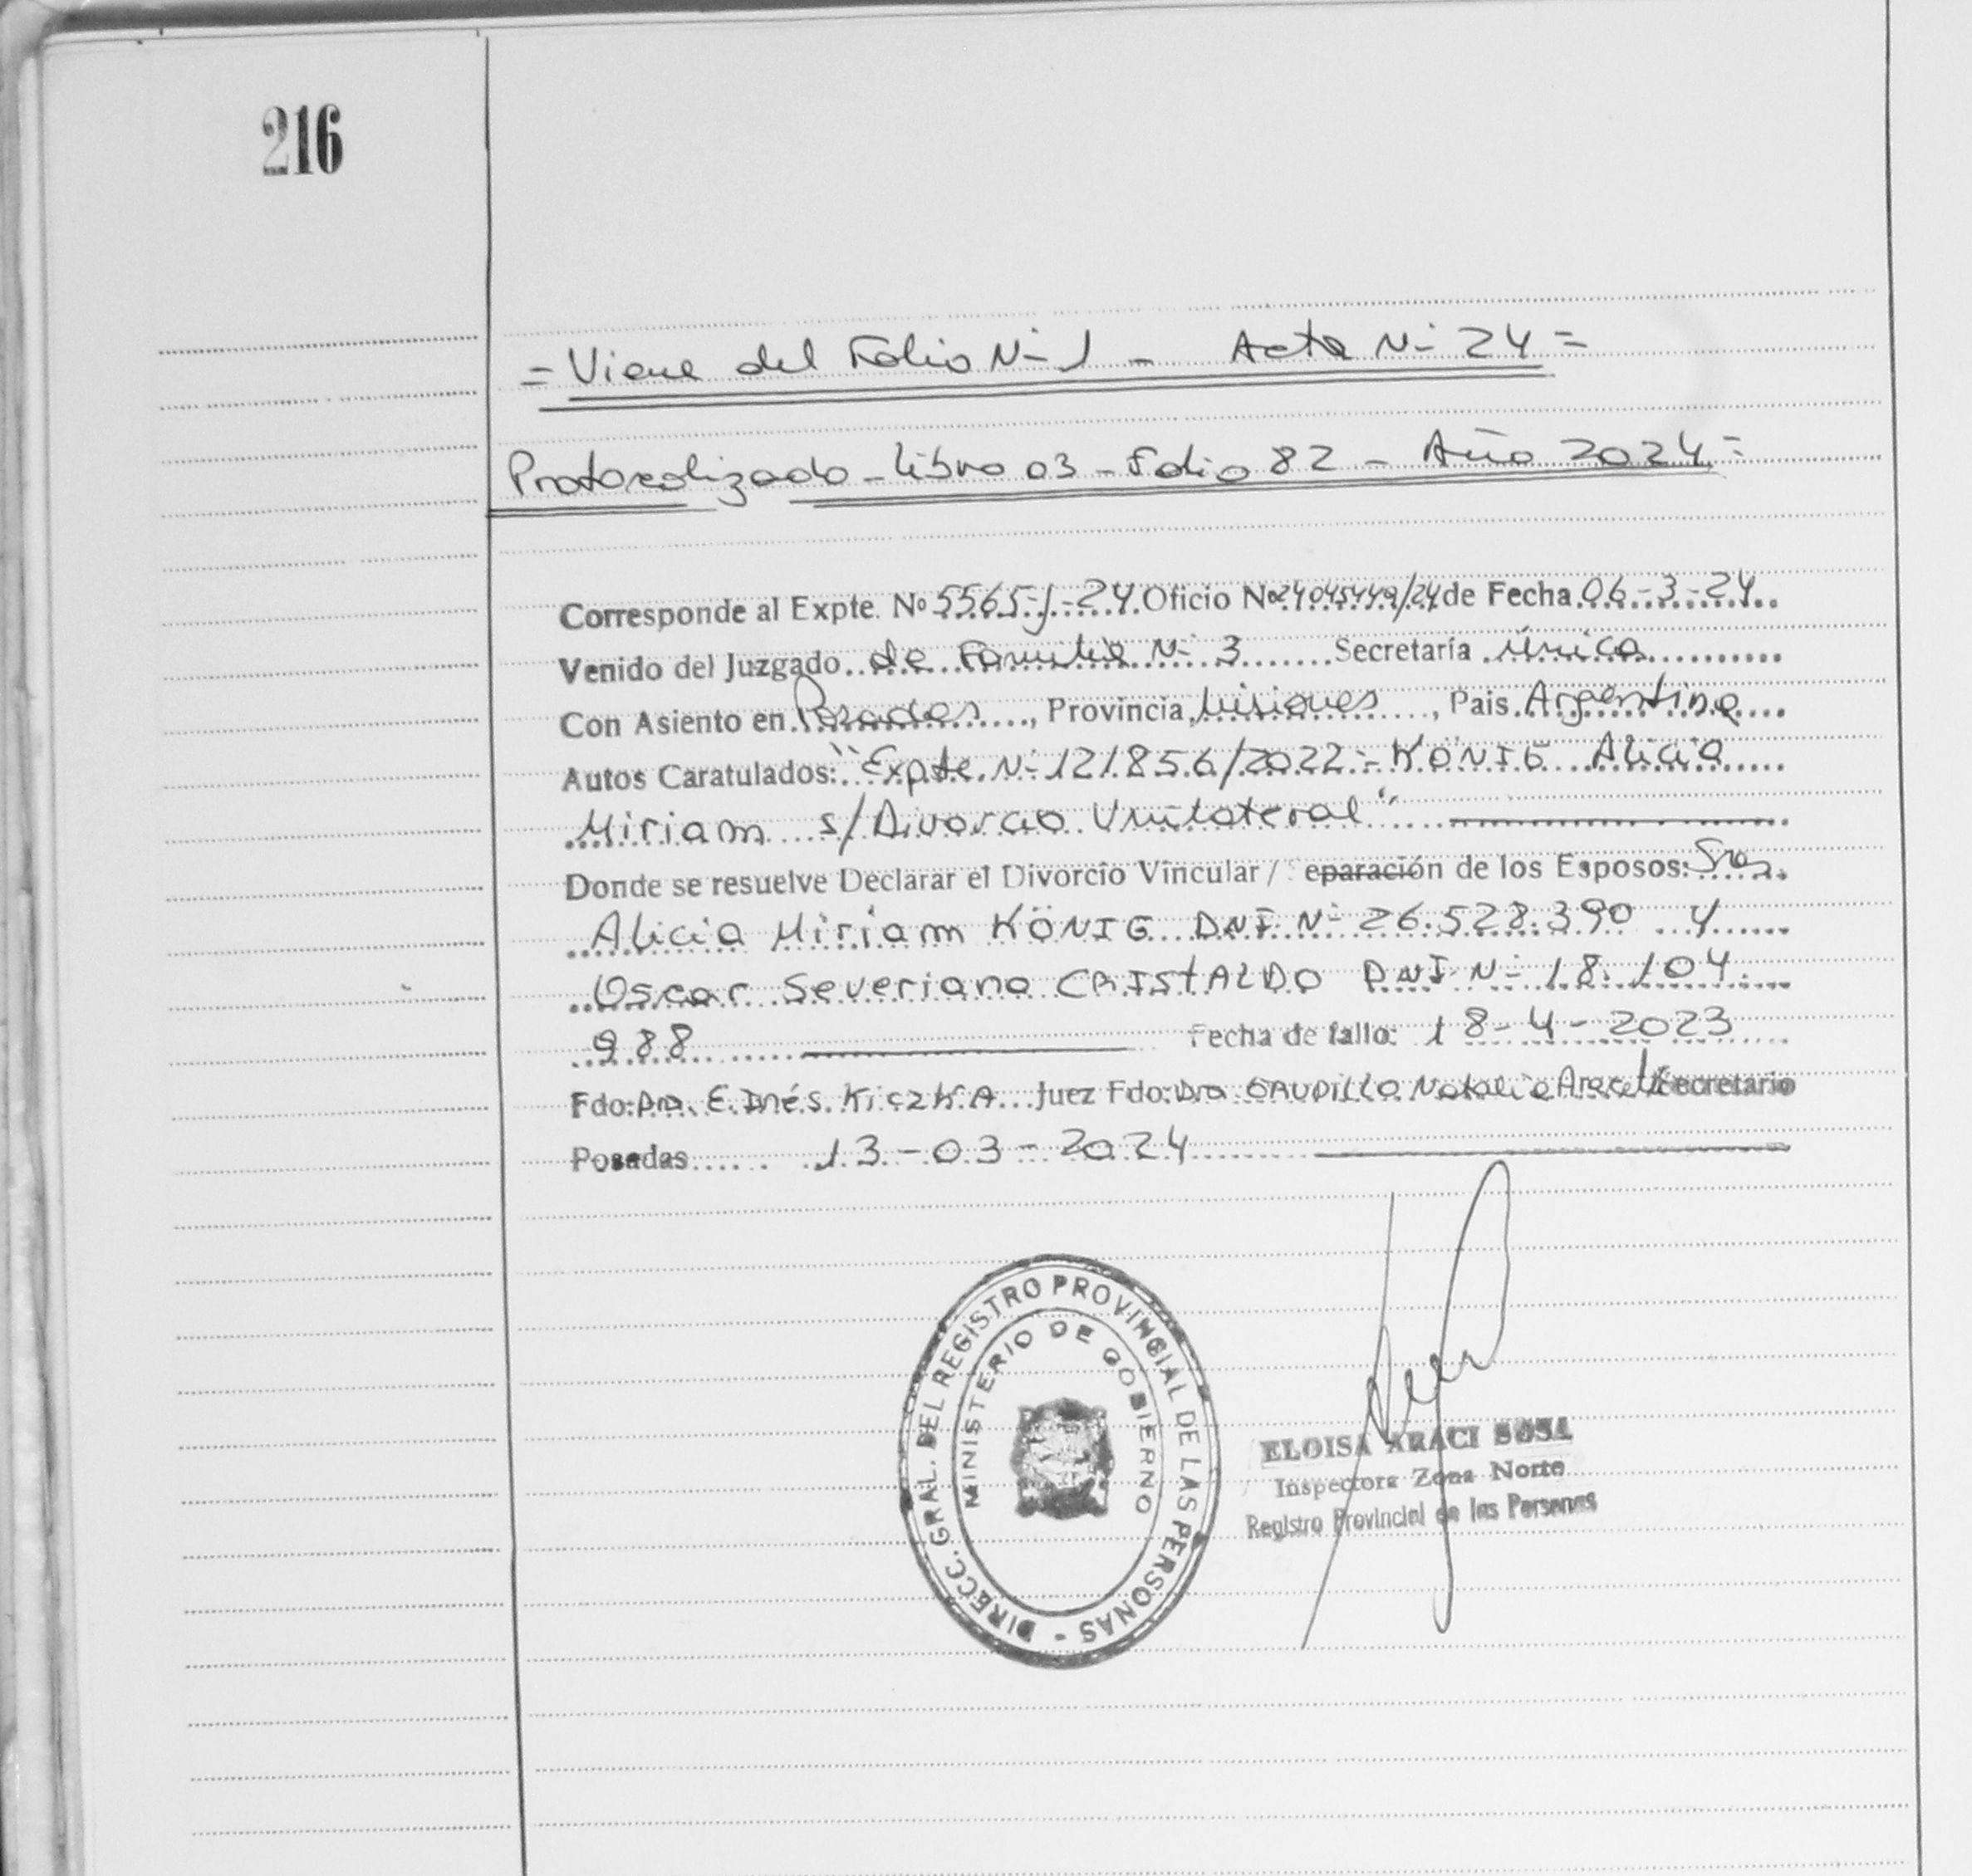 216
= Viene del Folio Nº 1 - Acta Nº 24 =
Protocolizado - Libro 03 - Folio 82 - Año 2024 =
Corresponde al Expte. Nº 5565-J-24 Oficio Nº 24045449/24 de Fecha 06-3-24
Venido del Juzgado de Familia Nº 3 Secretaría única
Con Asiento en Posadas, Provincia Misiones, Pais Argentina
Autos Caratulados: "Expte. Nº 121856/2022 - KÖNIG Alicia
Miriam s/Divorcio Unilateral"
Donde se resuelve Declarar el Divorcio Vincular / Separación de los Esposos: Sres.
Alicia Miriam KÖNIG DNI Nº 26.528.390 y
Oscar Severiano CRIStALDO DNI Nº 18.104.
988 Fecha de fallo: 18-4-2023
Fdo: Dra. E. Inés KiczKA Juez Fdo: Dra GAUDILLO Natalia Araceli Secretario
Posadas 13-03-2024
DIRECC. GRAL. DEL REGISTRO PROVINCIAL DE LAS PERSONAS -
MINISTERIO DE GOBIERNO
ELOISA ARACI SOSA
Inspectora Zona Norte
Registro Provincial de las Personas